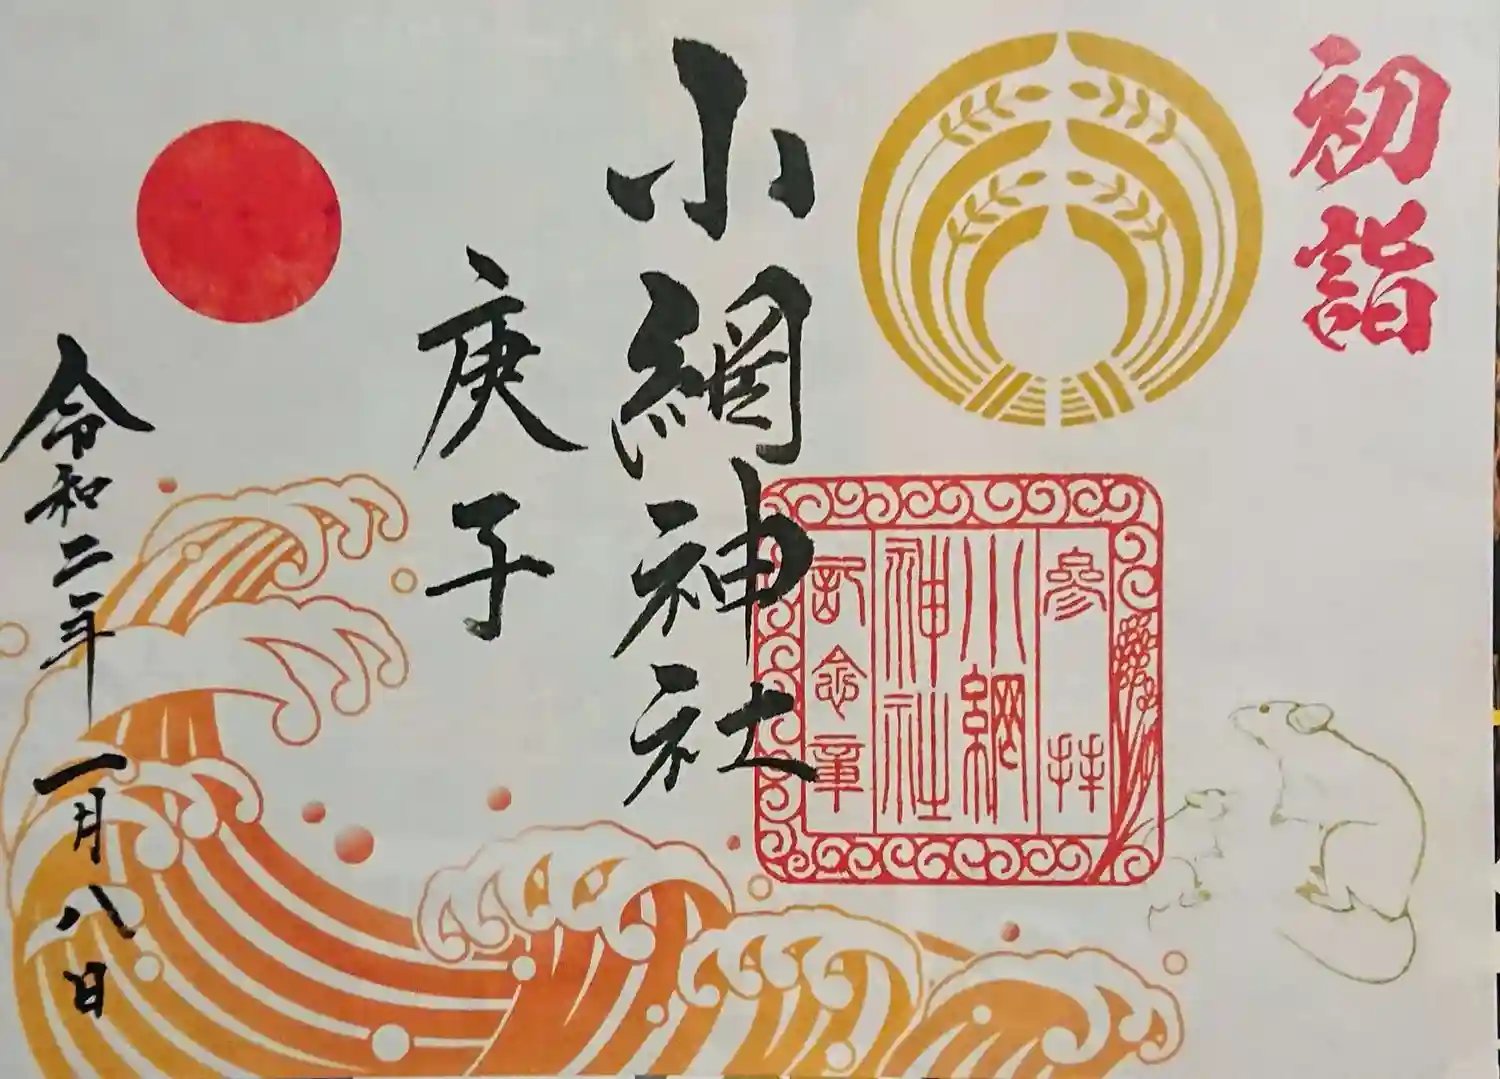 初詣
参拝
小網
神社
記念章
小網神社
庚子
令和二年一月八日